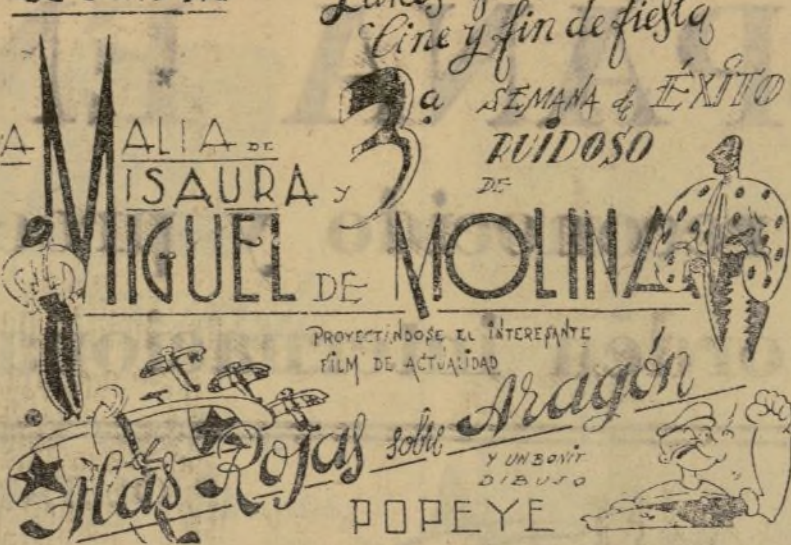 Cine y fin de fiesta
AMALIA DE
ISAURA Y
3ª SEMANA de ÉXITO
RUIDOSO
DE
MIGUEL DE MOLINA
PROYECTÁNDOSE EL INTERESANTE
FILM DE ACTUALIDAD
Alas Rojas sobre Aragón
Y UN BONIT
DIBUJO
POPEYE